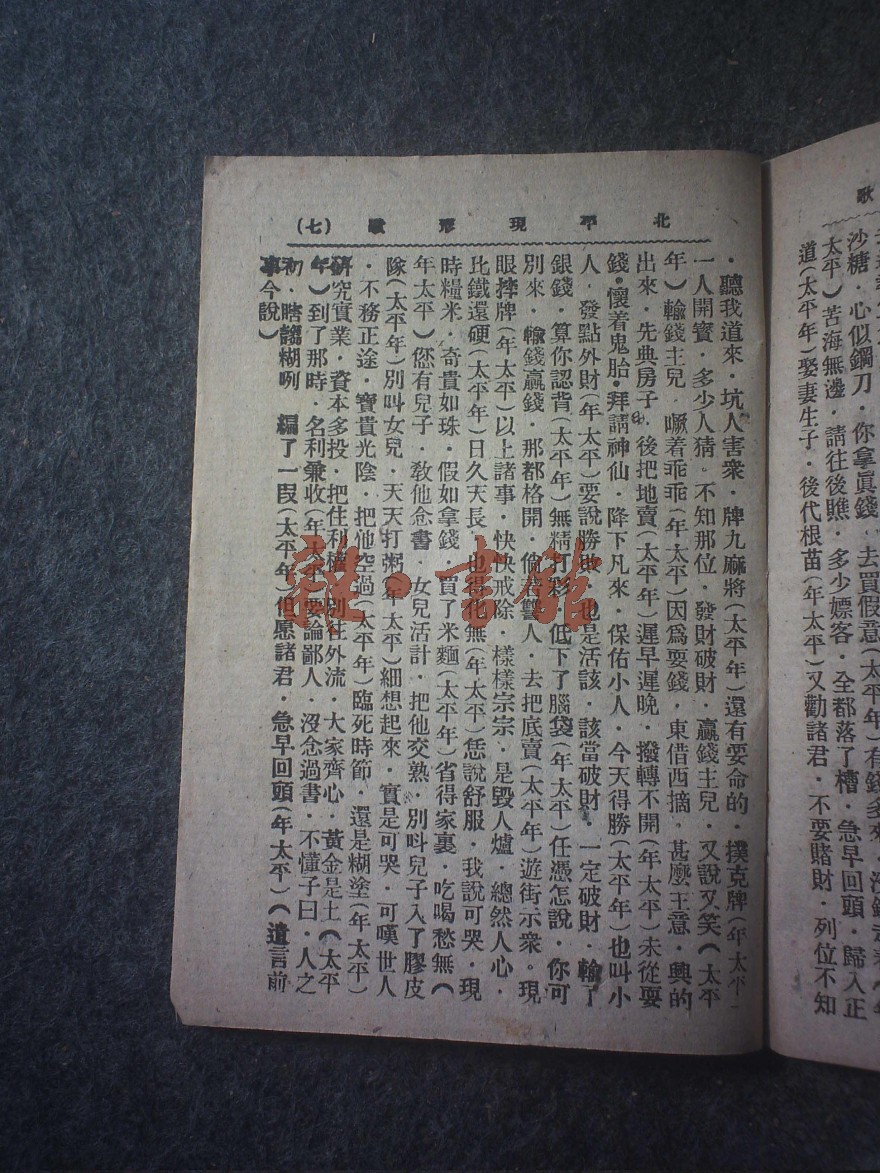 歌
沙糖．心似鋼刀．你拿眞錢．去買假意（太平年）有錢多來．沒錢
太平）苦海無邊．請往後瞧．多少嫖客．全都落了槽．急早回頭．歸入正
道（太平年）娶妻生子．後代根苗（年太平）又勸諸君．不要賭財．列位不知
北平現形歌 （七）
．聽我道來．坑人害衆．牌九麻將（太平年）還有要命的．撲克牌（年太平）
一人開寶．多少人猜．不知那位．發財破財．贏錢主兒．又說又笑（太平
年）輸錢主兒．噘着乖乖（年太平）因爲耍錢．東借西摘．甚麼主意．興的
出來．先典房子．後把地賣（太平年）遲早遲晚．撥轉不開（年太平）未從耍
錢．懷着鬼胎．拜請神仙．降下凡來．保佑小人．今天得勝（太平年）也叫小
人．發點外財（年太平）要說勝　．也是活該．該當破財．一定破財．輸了
銀錢．算你認背（太平年）無精打彩．低下了腦袋（年太平）任憑怎說．你可
別來．輸錢贏錢．那都格開．偷　　人．去把底賣（太平年）遊街示衆。現
眼摔牌（年太平）以上諸事．快快戒除．樣樣宗宗．是毀人爐．總然人心．
比鐵還硬（太平年）日久天長．也得化無（年太平）恁說舒服．我說可哭．現
時糧米．奇貴如珠．假如拿錢．買了米麵（太平年）省得家裏．吃喝愁無（
年太平）您有兒子．敎他念書　女兒活計．把他交熟．別叫兒子入了膠皮
隊（太平年）別叫女兒．天天打粥（年太平）細想起來．實是可哭．可嘆世人
．不務正途．寶貴光陰．把他空過（太平年）臨死時節．還是糊塗（年太平）
研究實業．資本多投．把住利權．別往外流．大家齊心．黃金是土（太平
年）到了那時．名利兼收（年太平）要論鄙人．沒念過書．不懂子曰．人之
初．瞎謅糊咧　編了一段（太平年）但愿諸君．急早回頭（年太平）（遺言前
事今說）
雜·書館